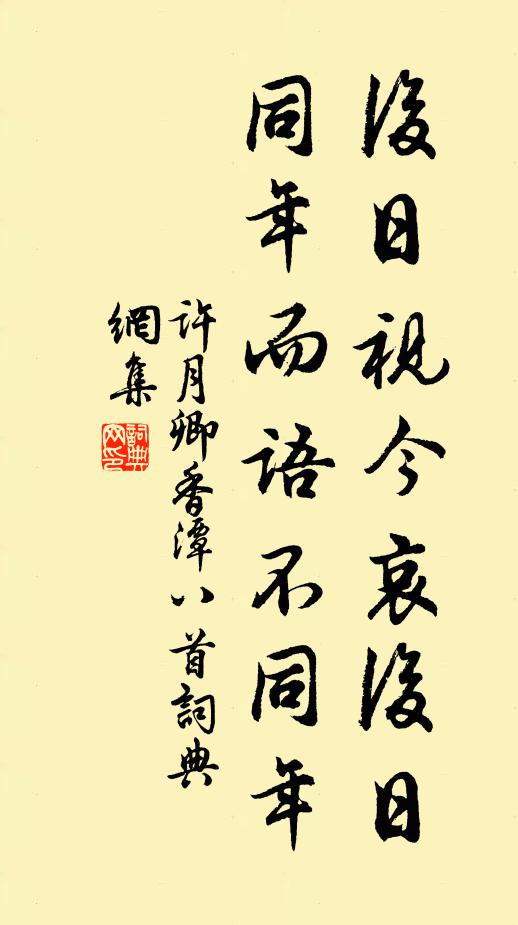 後日視今哀後日
同年而語不同年
許月卿香潭八首詞典
網集
詞典網印